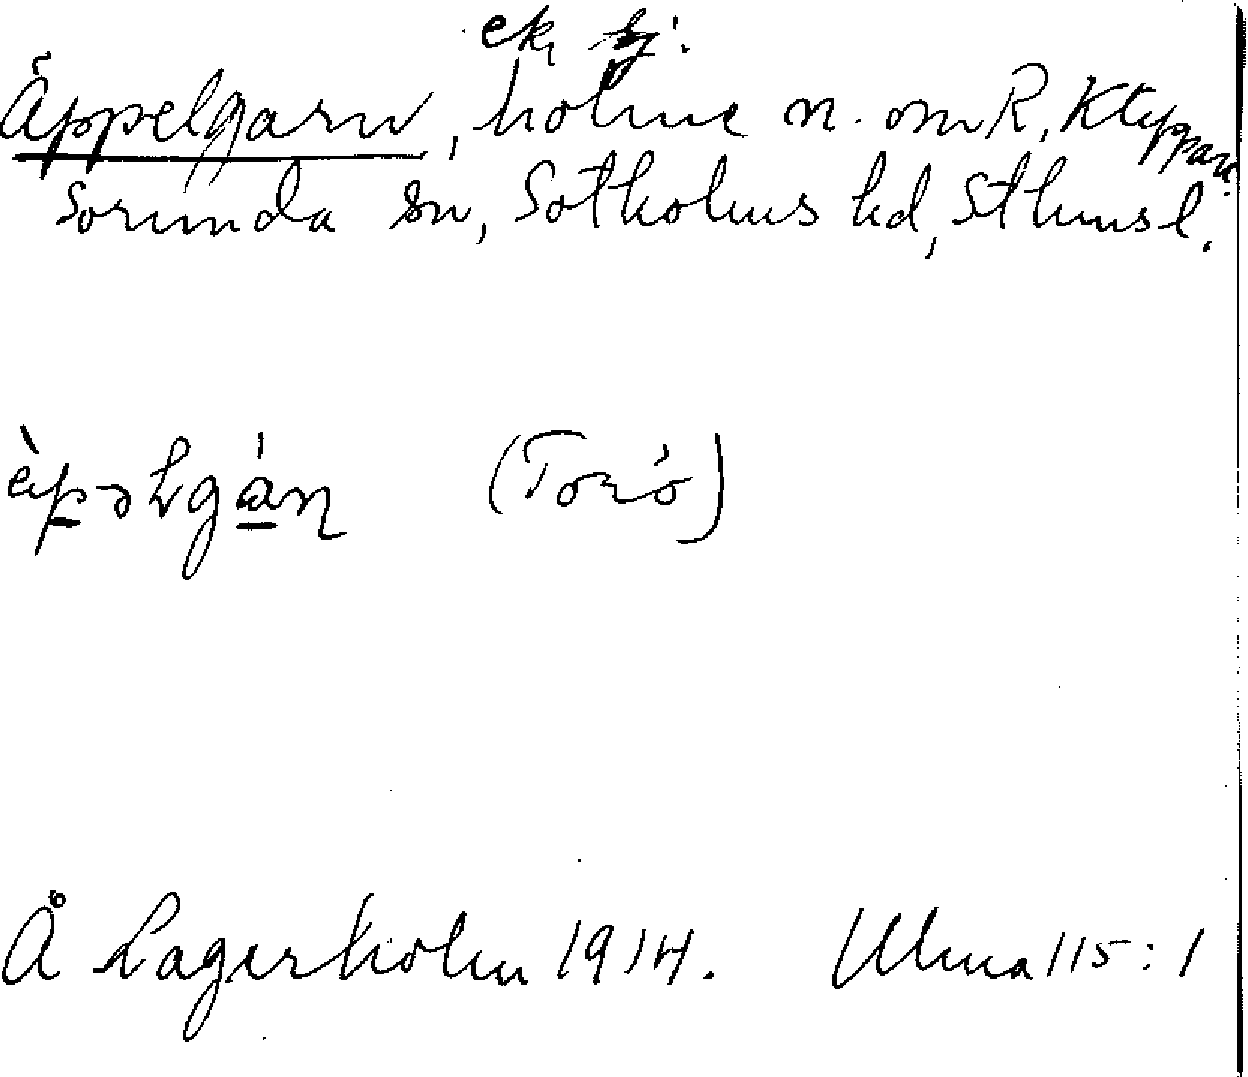 ek,
Äppelgarn, holme n. om R, Kteppan.
Sorunda sn, Sotholms hd, Sthms l.
èpəLgán (Torö)
Å Lagerholm 1914. Ulma 115:1